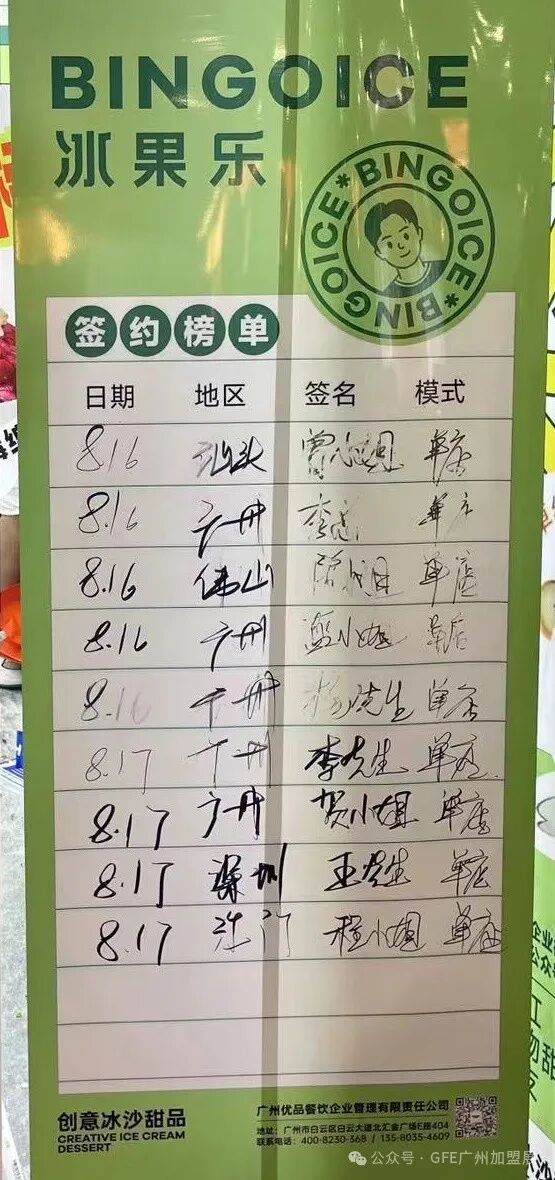 BINGOICE
冰果乐
BINGOICE*BINGOICE*BINGOICE*
签约榜单
日期 地区 签名 模式
8.16 汕头 曾小姐 单店
8.16 广州 李总 单店
8.16 佛山 陈小姐 单店
8.16 广州 蓝小姐 单店
8.16 广州 杨先生 单店
8.17 广州 李先生 单店
8.17 广州 贺小姐 单店
8.17 深圳 王先生 单店
8.17 江门 程小姐 单店
创意冰沙甜品
CREATIVE ICE CREAM
DESSERT
广州优品餐饮企业管理有限责任公司
地址:广州市白云区白云大道北汇金广场E座404
联系电话:400-8230-368 / 135-8035-4609
公众号 · GFE广州加盟展